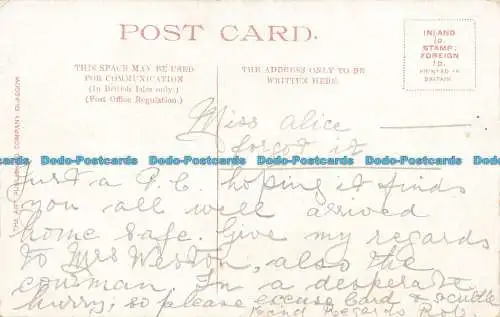 POST CARD.
INLAND
½D.
STAMP,
FOREIGN
1D.
PRINTED IN
BRITAIN
THIS SPACE MAY BE USED
FOR COMMUNICATION
(In British Isles only.)
(Post Office Regulation.)
THE ADDRESS ONLY TO BE
WRITTEN HERE.
THE ART PUBLISHING COMPANY GLASGOW
Miss Alice
forgot it
Just a P.C. hoping it finds
you all well arrived
home safe. Give my regards
to Mrs Weston, also the
In a desperate
hurry; so please excuse Card &
kind Regards Rob.
Dodo-Postcards Dodo-Postcards Dodo-Postcards Dodo-Postcards
Dodo-Postcards Dodo-Postcards Dodo-Postcards Dodo-Postcards